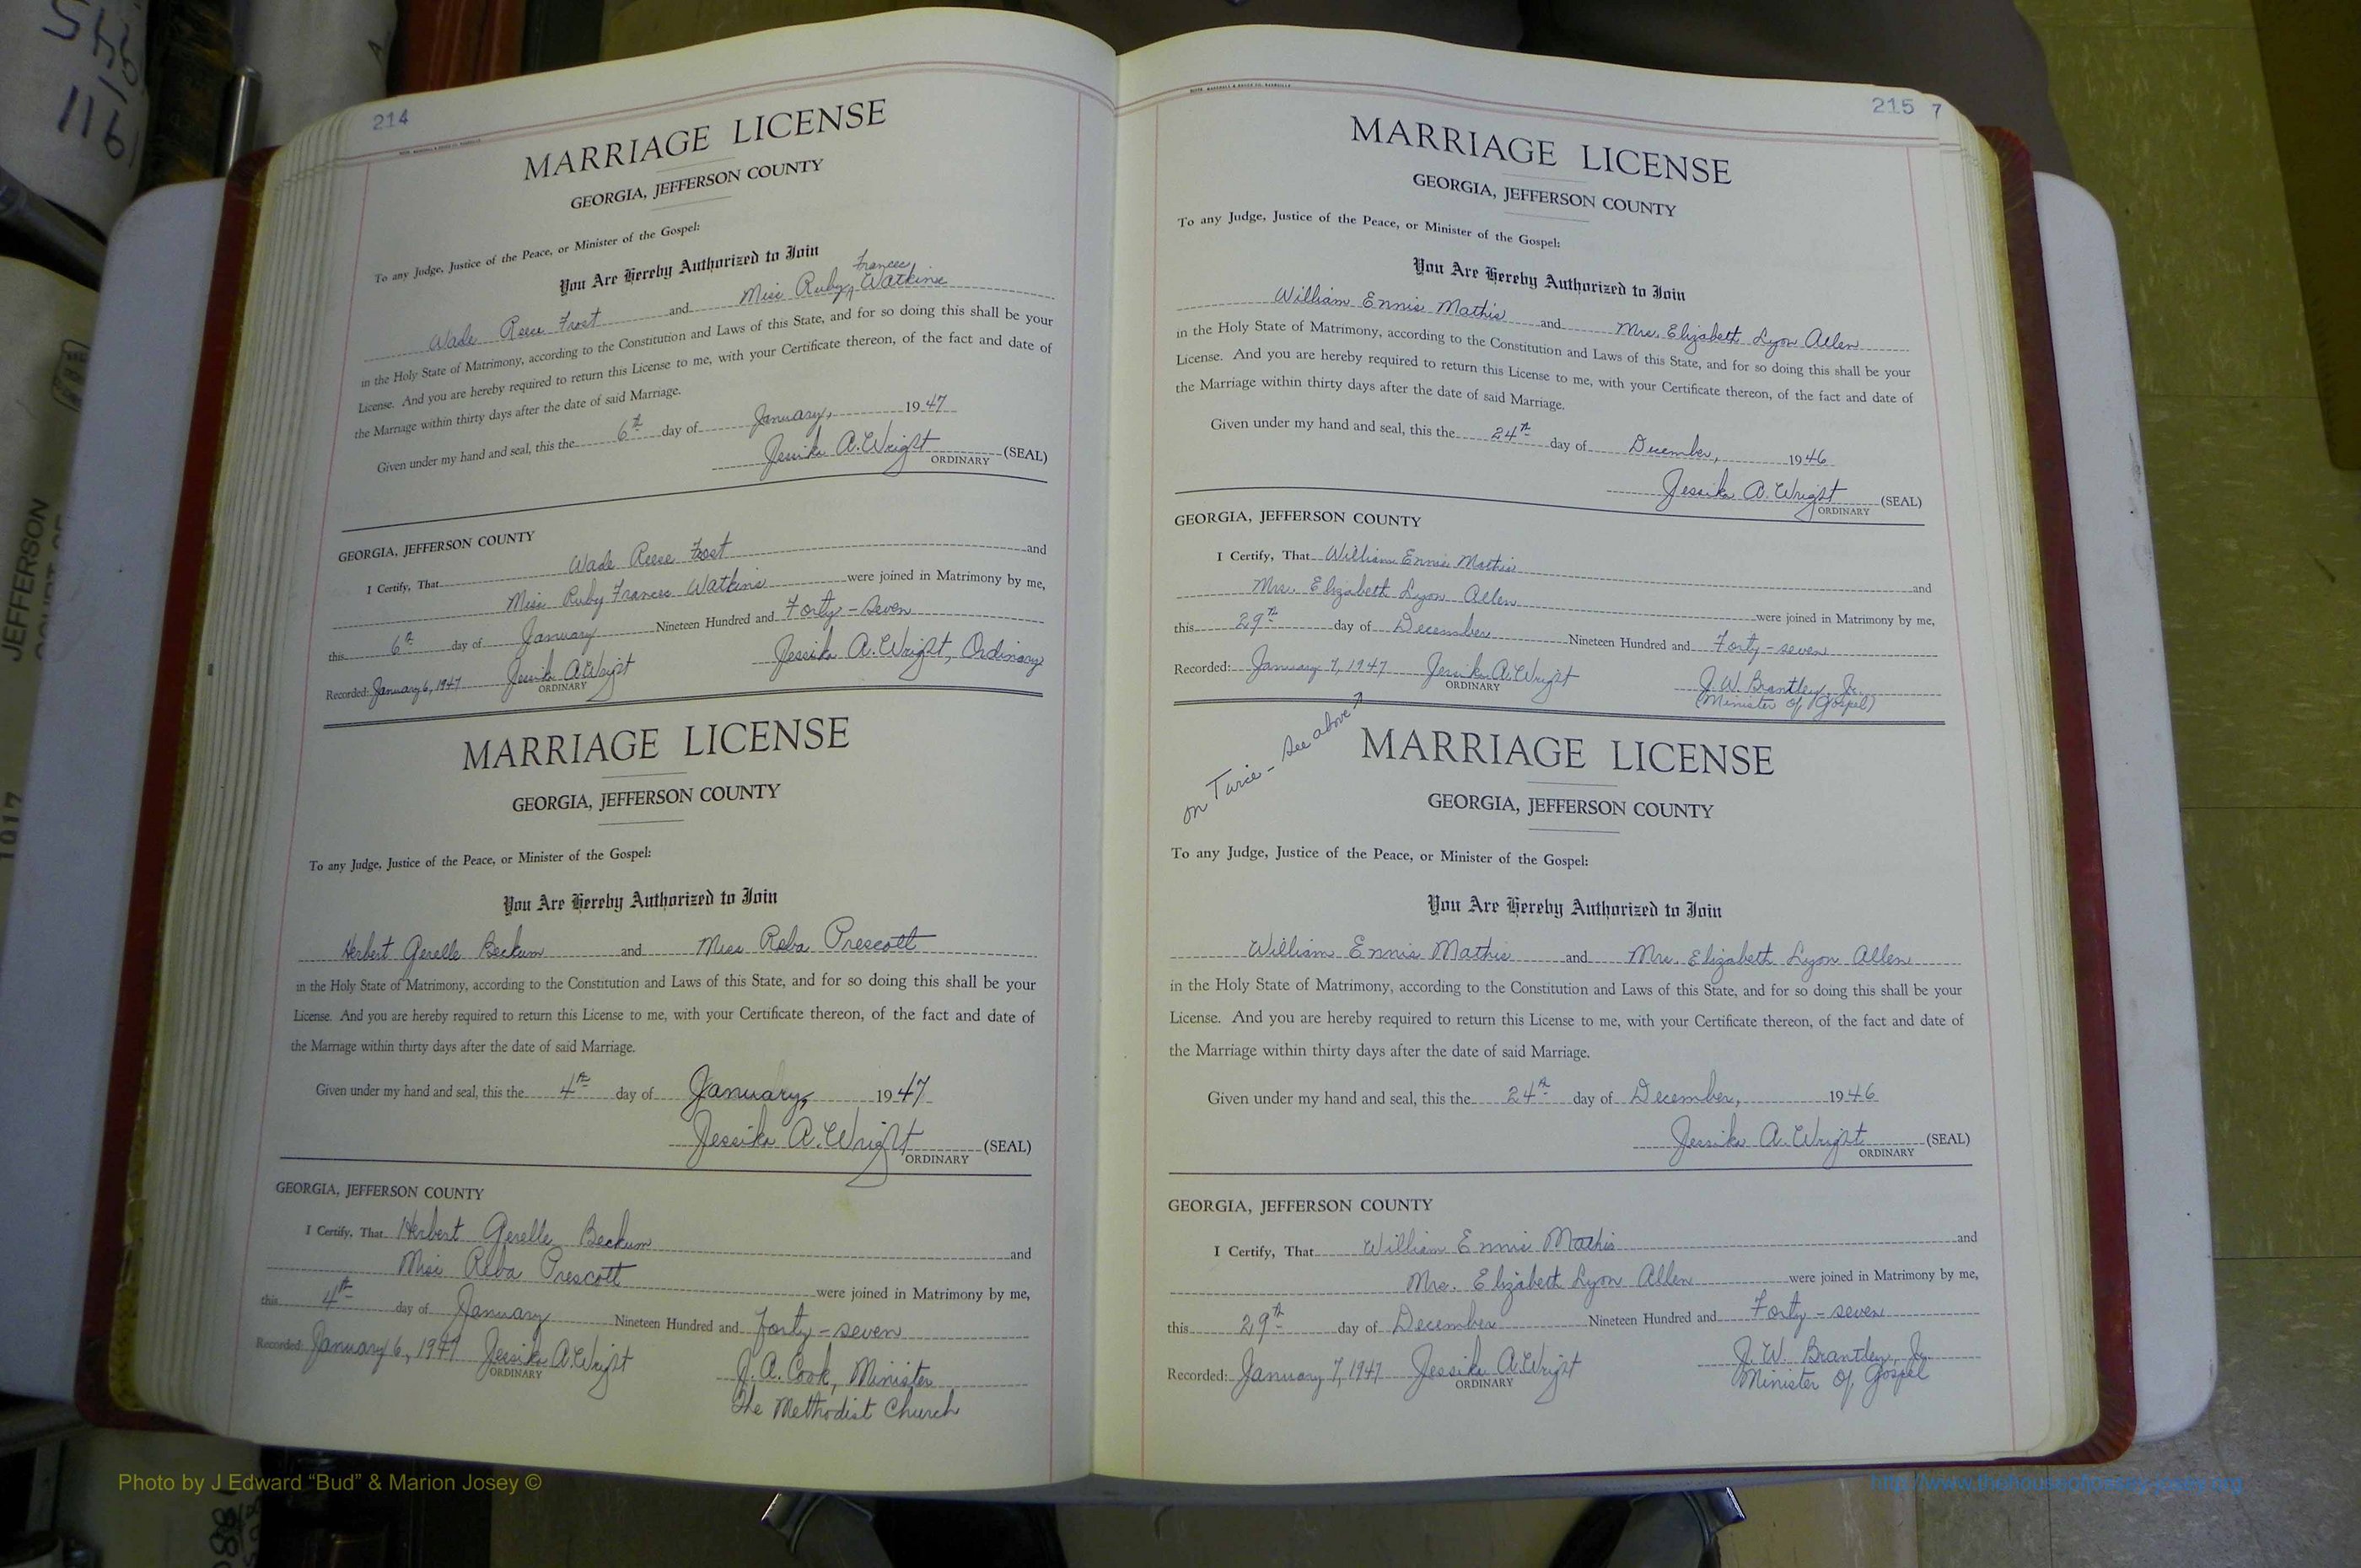 214
MARRIAGE LICENSE
GEORGIA, JEFFERSON COUNTY
To any Judge, Justice of the Peace, or Minister of the Gospel:
You Are Hereby Authorized to Join
Frances
Wade Reese Frost and Miss Ruby ^ Watkins
in the Holy State of Matrimony, according to the Constitution and Laws of this State, and for so doing this shall be your
License. And you are hereby required to return this License to me, with your Certificate thereon, of the fact and date of
the Marriage within thirty days after the date of said Marriage.
Given under my hand and seal, this the 6th day of January, 1947
Jessika A. Wright (SEAL)
ORDINARY
GEORGIA, JEFFERSON COUNTY
I Certify, That Wade Reese Frost and
Miss Ruby Frances Watkins were joined in Matrimony by me,
this 6th day of January Nineteen Hundred and Forty-seven
Recorded: January 6, 1947 Jessika A. Wright Jessika A. Wright, Ordinary
ORDINARY
MARRIAGE LICENSE
GEORGIA, JEFFERSON COUNTY
To any Judge, Justice of the Peace, or Minister of the Gospel:
You Are Hereby Authorized to Join
Herbert Gerelle Beckum and Miss Reba Prescott
in the Holy State of Matrimony, according to the Constitution and Laws of this State, and for so doing this shall be your
License. And you are hereby required to return this License to me, with your Certificate thereon, of the fact and date of
the Marriage within thirty days after the date of said Marriage.
Given under my hand and seal, this the 4th day of January, 1947
Jessika A. Wright (SEAL)
ORDINARY
GEORGIA, JEFFERSON COUNTY
I Certify, That Herbert Gerelle Beckum and
Miss Reba Prescott were joined in Matrimony by me,
this 4th day of January Nineteen Hundred and Forty-seven
Recorded: January 6, 1947 Jessika A. Wright J. A. Cook, Minister
ORDINARY
The Methodist Church
215 7
MARRIAGE LICENSE
GEORGIA, JEFFERSON COUNTY
To any Judge, Justice of the Peace, or Minister of the Gospel:
You Are Hereby Authorized to Join
William Ennis Mathis and Mrs. Elizabeth Lyon Allen
in the Holy State of Matrimony, according to the Constitution and Laws of this State, and for so doing this shall be your
License. And you are hereby required to return this License to me, with your Certificate thereon, of the fact and date of
the Marriage within thirty days after the date of said Marriage.
Given under my hand and seal, this the 24th day of December, 1946
Jessika A. Wright (SEAL)
ORDINARY
GEORGIA, JEFFERSON COUNTY
I Certify, That William Ennis Mathis and
Mrs. Elizabeth Lyon Allen were joined in Matrimony by me,
this 29th day of December Nineteen Hundred and Forty-seven
Recorded: January 7, 1947 Jessika A. Wright J. W. Brantley, Jr.
ORDINARY (Minister of Gospel)
on Twice - see above
MARRIAGE LICENSE
GEORGIA, JEFFERSON COUNTY
To any Judge, Justice of the Peace, or Minister of the Gospel:
You Are Hereby Authorized to Join
William Ennis Mathis and Mrs. Elizabeth Lyon Allen
in the Holy State of Matrimony, according to the Constitution and Laws of this State, and for so doing this shall be your
License. And you are hereby required to return this License to me, with your Certificate thereon, of the fact and date of
the Marriage within thirty days after the date of said Marriage.
Given under my hand and seal, this the 24th day of December, 1946
Jessika A. Wright (SEAL)
ORDINARY
GEORGIA, JEFFERSON COUNTY
I Certify, That William Ennis Mathis and
Mrs. Elizabeth Lyon Allen were joined in Matrimony by me,
this 29th day of December Nineteen Hundred and Forty-seven
Recorded: January 7, 1947 Jessika A. Wright J. W. Brantley, Jr.
ORDINARY Minister of Gospel
116
JEFFERSON
1017
Photo by J Edward “Bud” & Marion Josey ©